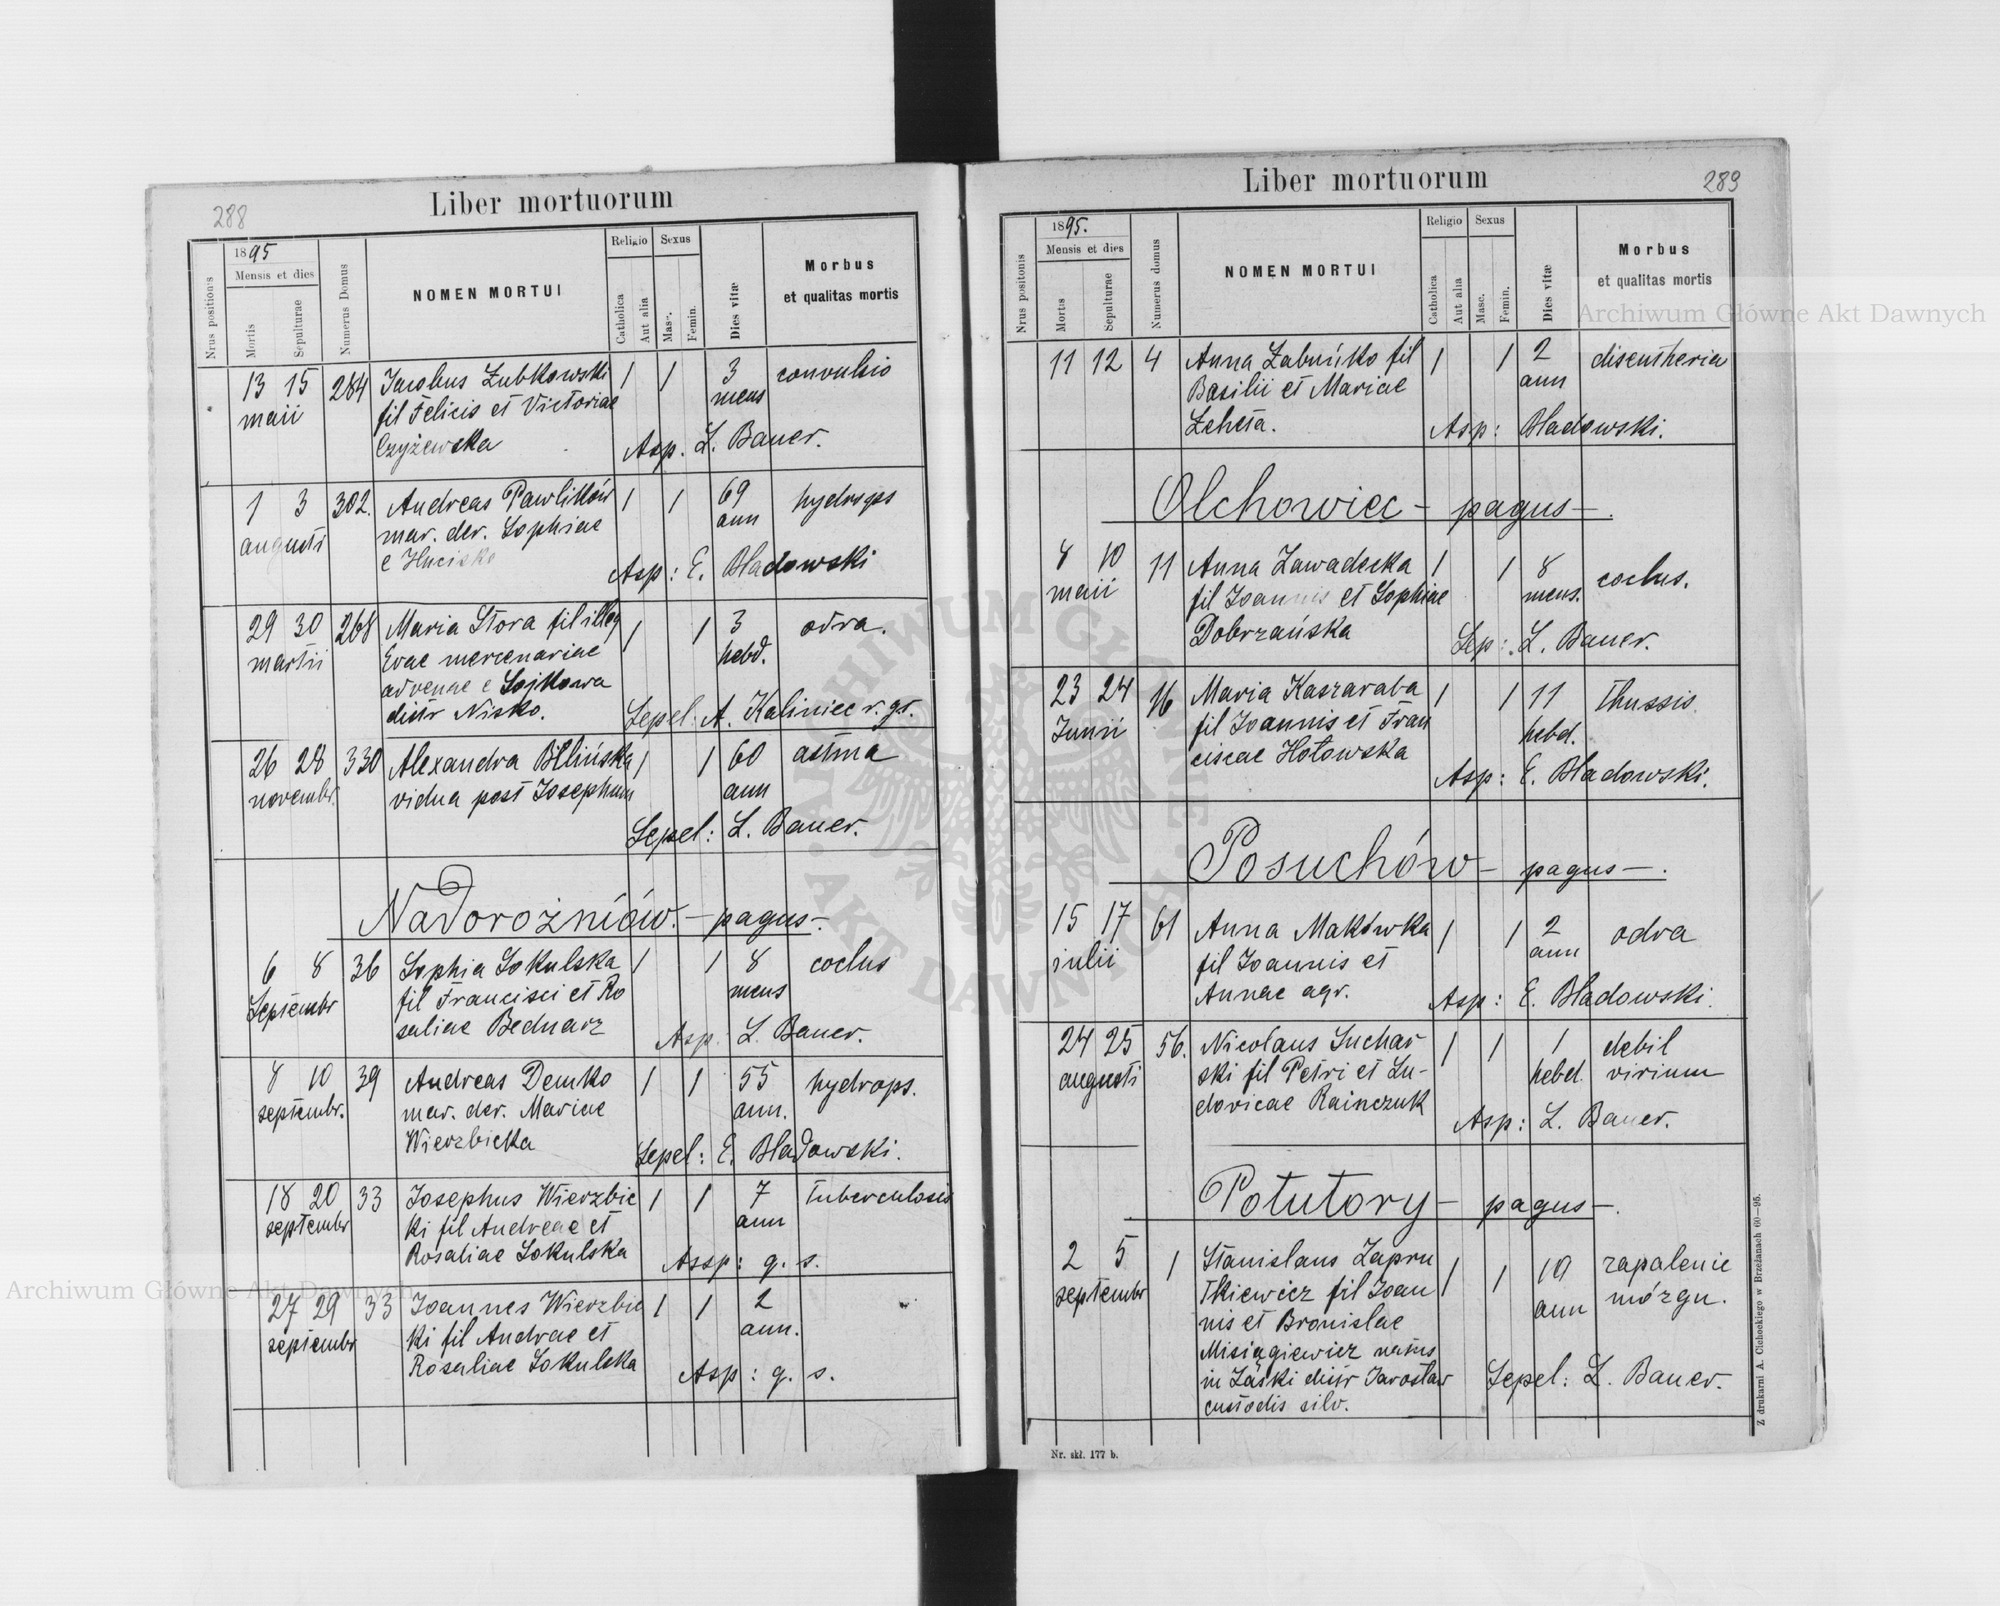 288
Liber mortuorum
Nrus positionis
1895
Mensis et dies
Mortis
Sepulturae
Numerus Domus
NOMEN MORTUI
Religio
Catholica
Aut alia
Sexus
Masc.
Femin.
Dies vitæ
Morbus
et qualitas mortis
13 15 284 Jacobus Zubkowski 1 1 3 convulsio
maii fil Felicis et Victoriae mens
Czyżewska Asp. L. Bauer.
1 3 302. Andreas Pawlików 1 1 69 hydrops
augusti mar. der. Sophiae ann
e Hucisko Asp: E. Bladowski
29 30 268 Maria Stora fil illeg 1 1 3 odra.
martii Evae mercenariae hebd.
advenae e Sojkowa
distr Nisko. Sepel. A. Kaliniec r. gr.
26 28 330 Alexandra Bilińska 1 1 60 astma
novembr. vidua post Josephum ann
Sepel: L. Bauer.
Nadorożniów - pagus -
6 8 36 Sophia Sokulska 1 1 8 coclus
Septembr fil Francisci et Ro mens
saliae Bednarz Asp. L. Bauer.
8 10 39 Andreas Demko 1 1 55 hydrops.
septembr. mar. der. Mariae ann.
Wierzbicka Sepel: E. Bladowski.
18 20 33 Josephus Wierzbic 1 1 7 tuberculosis
septembr ki fil Andreae et ann
Rosaliae Sokulska Assp: g. s.
27 29 33 Joannes Wierzbic 1 1 2
septembr ki fil Andrae et ann.
Rosaliae Sokulska Asp: g. s.
Liber mortuorum
289
Nrus positonis
1895.
Mensis et dies
Mortis
Sepulturae
Numerus domus
NOMEN MORTUI
Religio
Catholica
Aut alia
Sexus
Masc.
Femin.
Dies vitæ
Morbus
et qualitas mortis
11 12 4 Anna Zabuńko fil 1 1 2 disentheria
Basilii et Mariae ann
Zeheta. Asp: Bladowski.
Olchowiec - pagus -.
8 10 11 Anna Zawadecka 1 1 8 coclus.
maii fil Joannis et Sophiae mens.
Dobrzańska Sep: L. Bauer.
23 24 16 Maria Kaszaraba 1 1 11 thussis.
Junii fil Joannis et Fran hebd.
ciscae Hołowska Asp: E. Bladowski.
Posuchów - pagus -.
15 17 61 Anna Makówka 1 1 2 odra
iulii fil Joannis et ann
Annae agr. Asp: E. Bladowski.
24 25 56. Nicolaus Suchar 1 1 1 debil
augusti ski fil Petri et Lu- hebd. virium
dovicae Rainczuk Asp: L. Bauer.
Potutory - pagus -.
2 5 1 Stanislaus Zapru 1 1 10 zapalenie
septembr tkiewicz fil Joan ann mózgu.
nis et Bronislae
Misiągiewicz natus
in Łąski distr Jarosław Sepel: L. Bauer.
custodis silv.
Nr. skł. 177 b.
Z drukarni A. Cichockiego w Brzeżanach 60—95.
Archiwum Główne Akt Dawnych
Archiwum Główne Akt Dawnych
ARCHIWUM GŁÓWNE AKT DAWNYCH